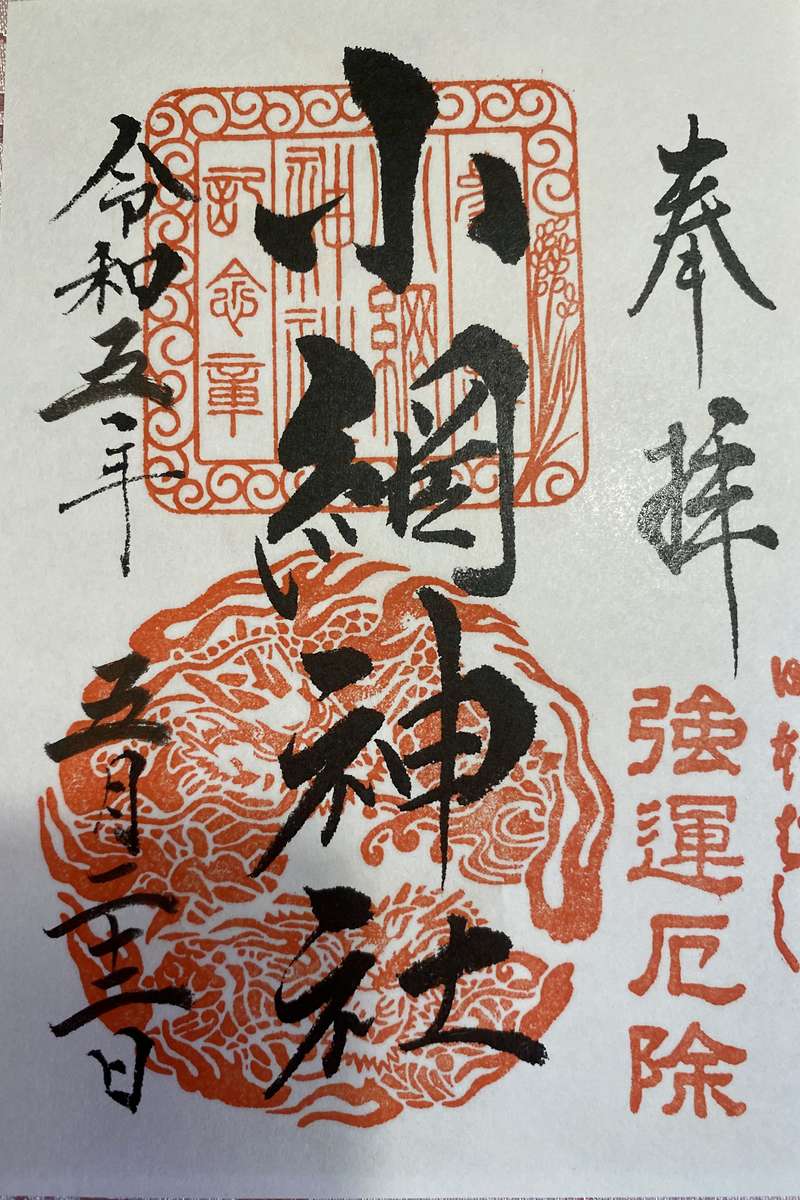 奉拝
強運厄除
小網神社
小網神社
記念章
令和五年
五月二十三日